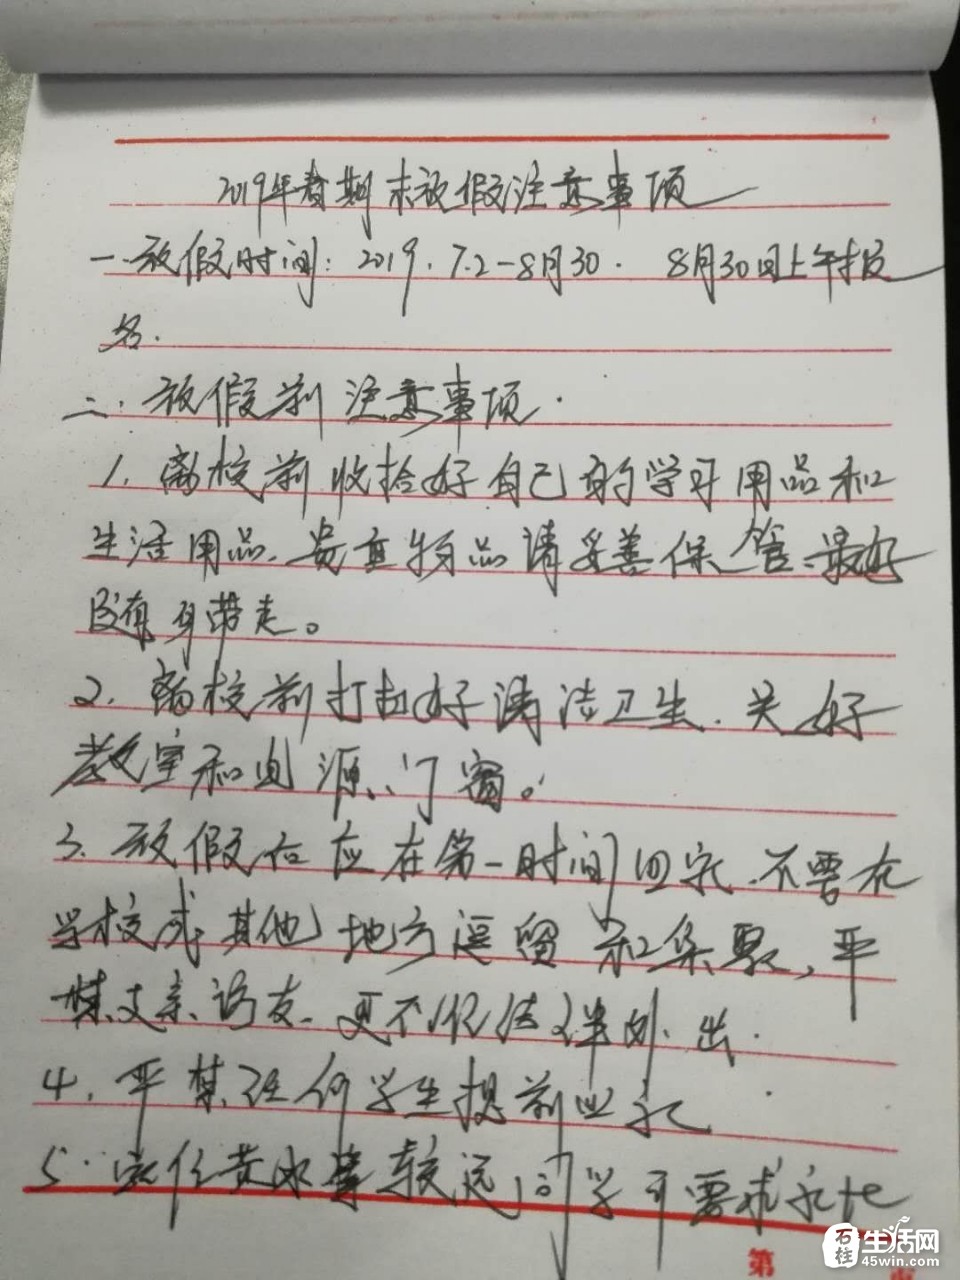 2019年春期末放假注意事项
一.放假时间:2019.7.2-8月30. 8月30日上午报
名.
二.放假前注意事项.
1.离校前收拾好自己的学习用品和
生活用品.贵重物品请妥善保管.最好
随身带走。
2.离校前打扫好清洁卫生.关好
教室和电源、门窗。
3.放假后应在第一时间回家.不要在
学校或其他地方逗留和集聚,严
禁走亲访友.更不准结伴外出.
4.严禁任何学生提前回家
5.家住黄水等较远的同学可要求家长
第 页
石柱生活网
45win.com